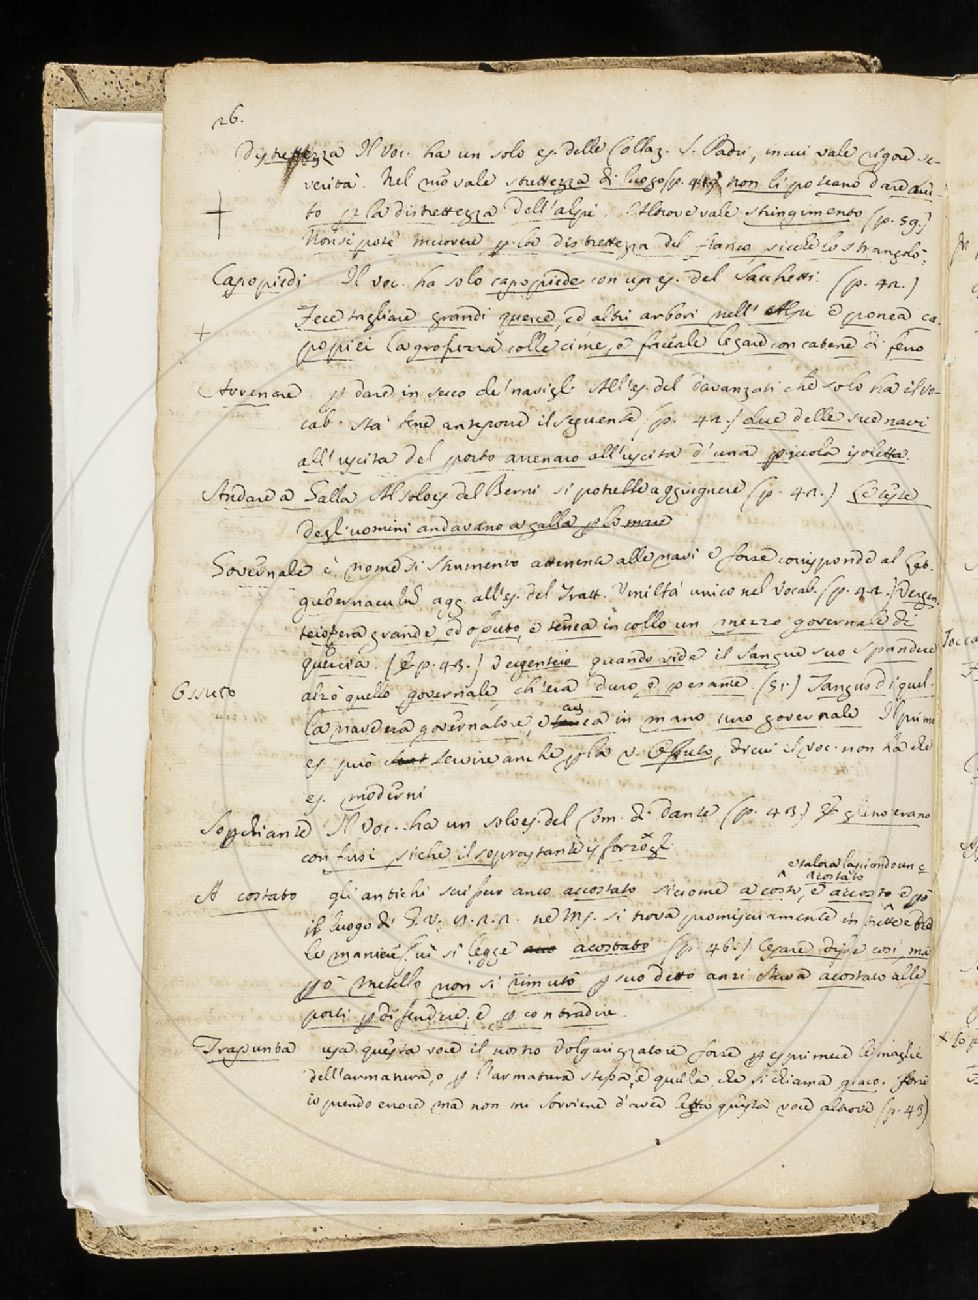 26.
Distrettezza Il Voc. ha un solo es. delle Collaz. S. Padri, in cui vale rigore se-
verità. Nel mio vale strettezza di luogo (p. 41) non li poteano dare aiu-
to p la distrettezza dell'alpi. Altrove vale stringimento (p. 59.)
Non si potè muovere p la distrettezza del fianco sicchè lo strangolò.
Capopiedi Il voc. ha solo capopiede con un es. del Sacchetti. (p. 42.)
Fece tagliare grandi querce, ed altri arbori nell' Alpe e ponea ca-
popiei la grossezza colle cime, e faceale legare con catene di ferro
Arrenare p dare in secco de' navigli All'es. del Davanzati che solo ha il Vo-
cab. sta bene anteporre il seguente (p. 42.) due delle sue navi
all'uscita del porto arrenaro all'uscita d'una picciola isoletta.
Andare a Galla Al solo es. del Berni si potrebbe aggiugnere (p. 42.) Le teste
degli uomini andavano a galla p lo mare
Governale è nome di strumento attenente alle navi e forse corrisponde al Lat.
gubernaculum agg. all'es. del Tratt. Umiltà unico nel Vocab. (p. 42.)
era grande, ed ossuto, e tenea in collo un mezzo governale di
quercia. (p. 43.) quando vide il sangue suo spandere
Ossuto alzò quello governale ch'era duro, e pesante. (51.) Tangus di quel-
la nave era governatore, e avea in mano suo governale Il primo
es. può servire anche p la v. Ossuto, di cui il voc. non ha che
es. moderni
Soprchiante Il Voc. ha un solo es. del Com. di Dante (p. 43) glino erano
confusi, siche il soprastante isforzogli
e talora lasciando un c
accostato
A costato gli antichi scissero anco accostato siccome a costo, e accosto e p
il luogo di T. V. 2.2.2. ne Ms. si trova promiscuamente in tutte e tre
le maniere. Qui si legge acostato (p. 46.) Cesare disse così ma
p Metello non si rimutò p suo detto anzi stava acostato alle
porti p difendere, e p contradire.
Trapunta usa questa voce il nostro Volgarizzatore forse p esprimere le maglie
dell'armatura, o p l'armatura stessa, e quella che si chiama giaco. forse
io prendo errore ma non mi sovviene d'aver letto questa voce altrove (p. 43)